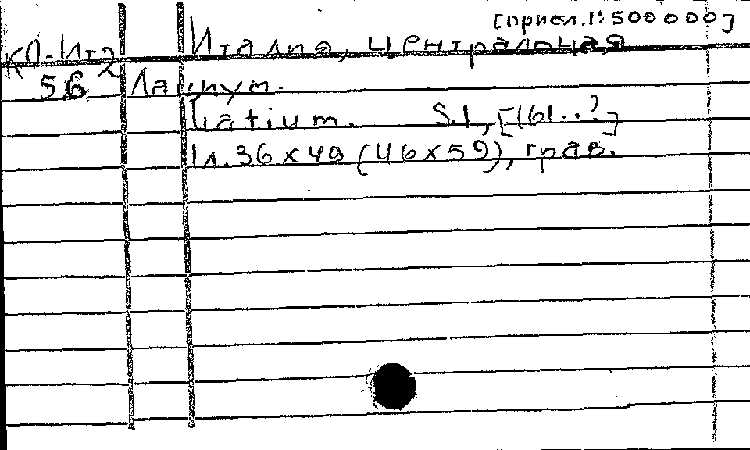 [прибл. 1:500 000]
КП-Ит2 Италия, центральная
56 Лациум.
Latium. S.l., [161..?]
1 л. 36 x 49 (46 x 59), грав.